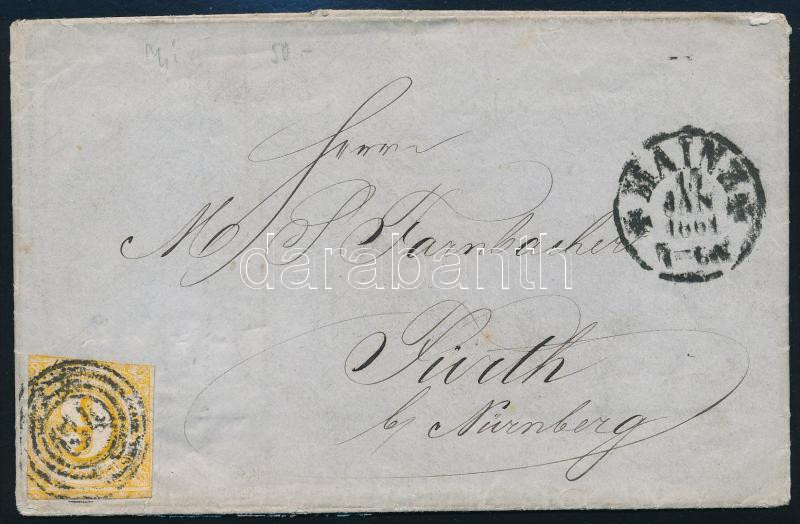 50 -
Herrn
M. S. Farnbacher
Fürth
b/ Nürnberg
MAINZ
11
JAN
1861
darabanth